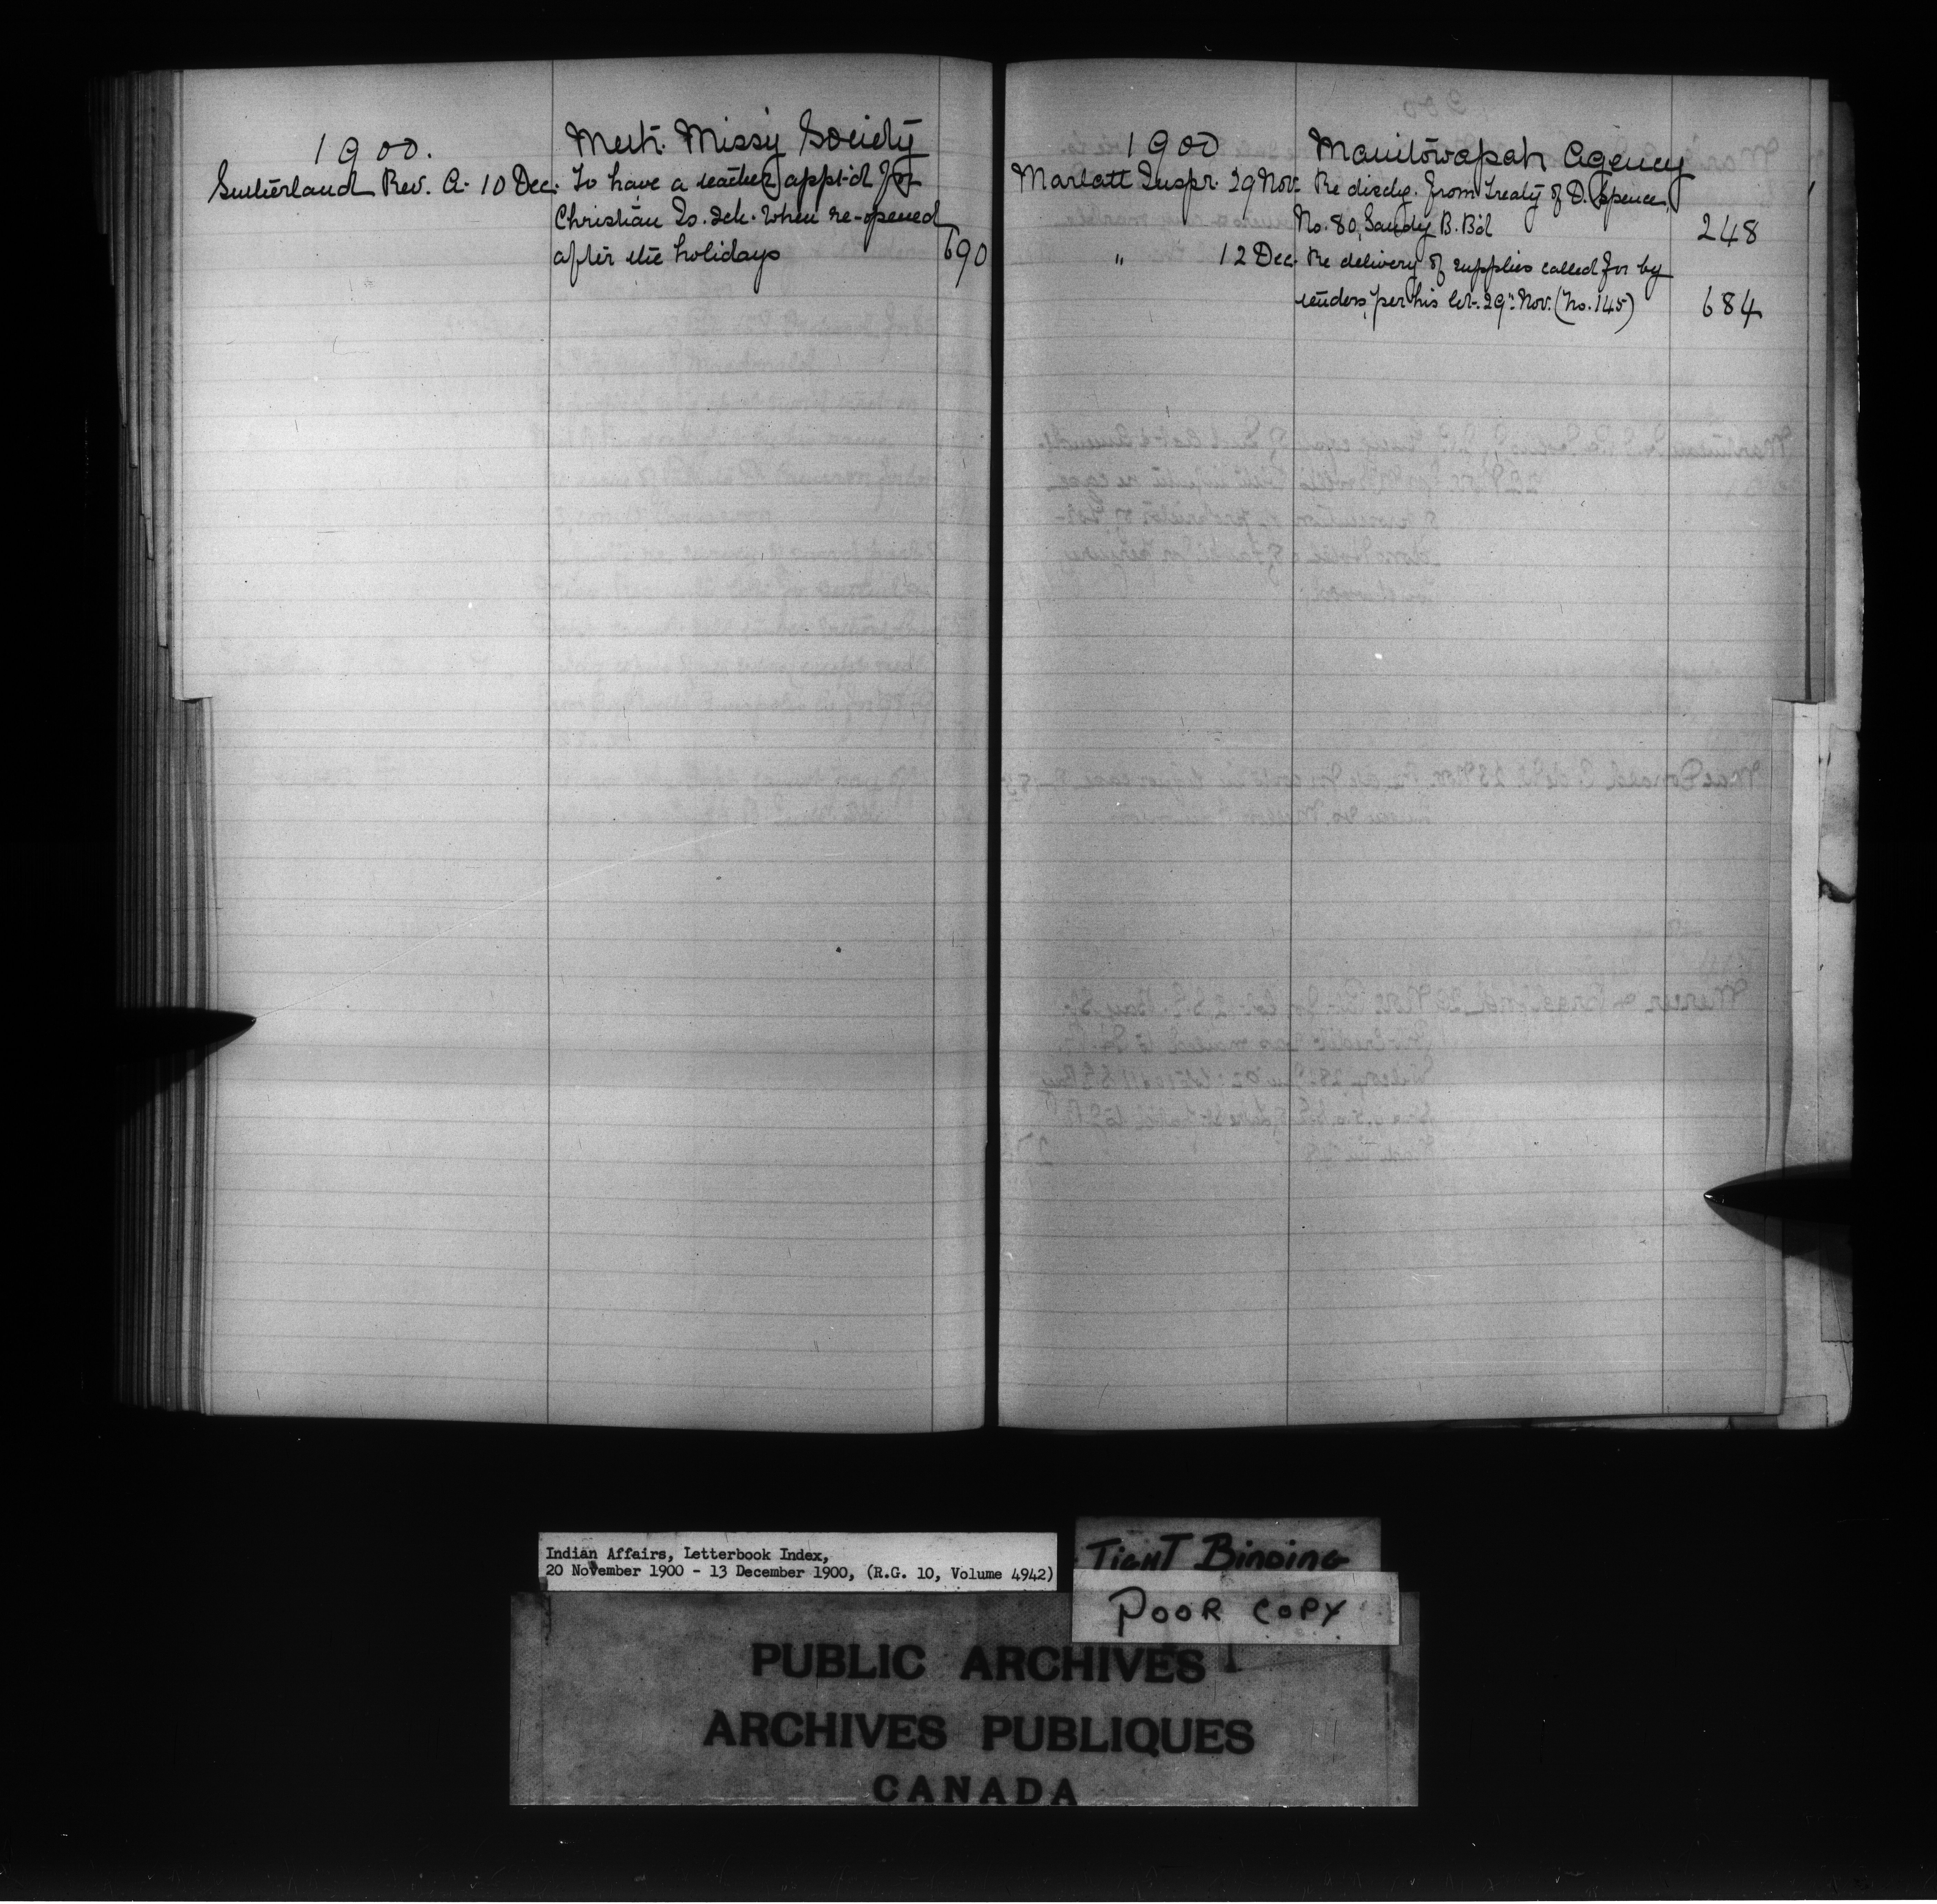 1900.
Meth. Missy Society
Sutherland Rev. A. 10 Dec. To have a teacher appt'd for
Christian Is. Sch. when re-opened
after the holidays 690
1900
Manitowapah Agency
Marlatt Inspr. 29 Nov. Re dischg. from Treaty of D. Spence,
No. 80, Sandy B. Bd 248
" 12 Dec. Re delivery of supplies called for by
tenders, per his let. 29th Nov. (No. 145) 684
Indian Affairs, Letterbook Index,
20 November 1900 - 13 December 1900, (R.G. 10, Volume 4942)
TIGHT BINDING
POOR COPY
PUBLIC ARCHIVES
ARCHIVES PUBLIQUES
CANADA